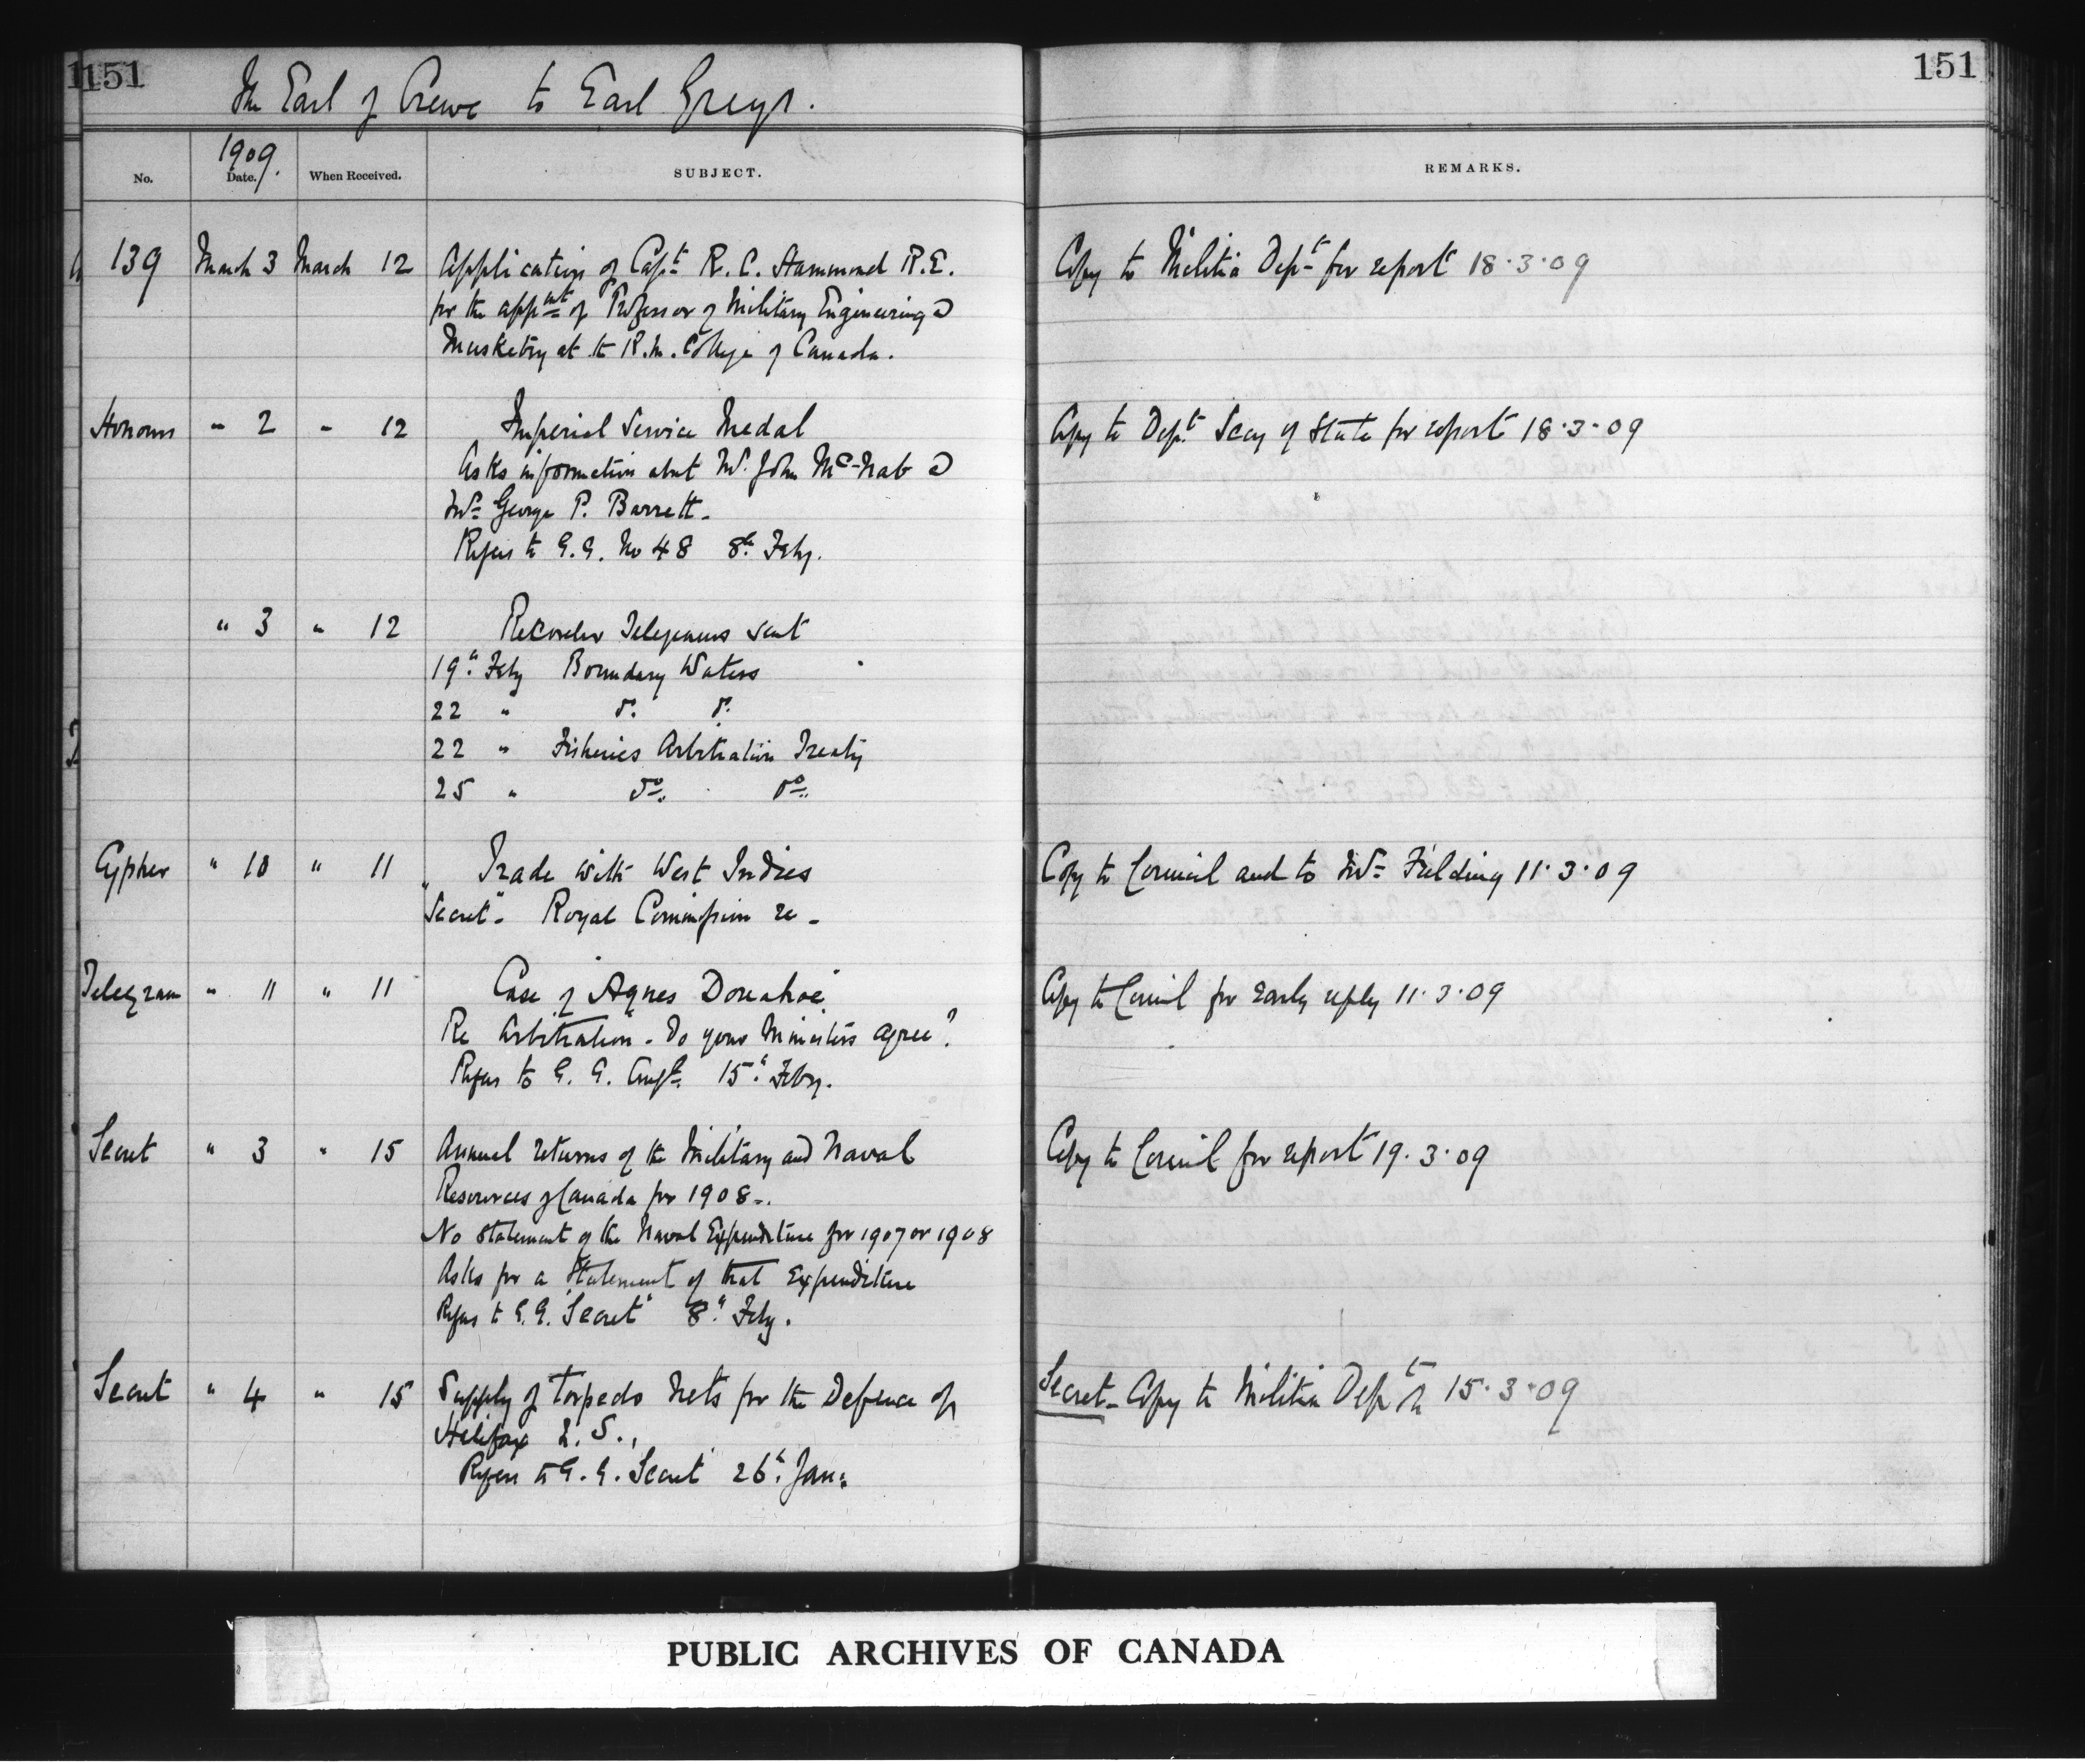 151
151
The Earl of Crewe to Earl Grey.
1909.
No.
Date.
When Received.
SUBJECT.
REMARKS.
139 March 3 March 12 Application of Capt. R. C. Hammond R.E. Copy to Militia Dept. for report 18.3.09
for the appmt of Professor of Military Engineering &
Musketry at the R.M. College of Canada.
Honours " 2 " 12 Imperial Service Medal Copy to Dept. Secy of State for report 18.3.09
Asks information about Mr. John McNab &
Mr. George P. Barrett.
Refers to G.G. No 48 8th Feby.
" 3 " 12 Recorder Telegrams sent
19th Feby Boundary Waters
22 " do. do.
22 " Fisheries Arbitration Treaty
25 " do. do.
Cypher " 10 " 11 Trade with West Indies Copy to Council and to Mr. Fielding 11.3.09
"Secret". Royal Commission re -
Telegram " 11 " 11 Case of "Agnes Donahoe" Copy to Council for early reply 11.3.09
Re Arbitration. Do your Ministers agree?
Refers to G. G. 15th Feby.
Secret " 3 " 15 Annual returns of the Military and Naval Copy to Council for report 19.3.09
Resources of Canada for 1908.
No Statement of the Naval Expenditure for 1907 or 1908
Asks for a Statement of that Expenditure
Refers to G.G. "Secret" 8th Feby.
Secret " 4 " 15 Supply of Torpedo Nets for the Defence of Secret. Copy to Militia Dept. 15.3.09
Halifax
Refers to G.G. Secret 26th Jan:
PUBLIC ARCHIVES OF CANADA